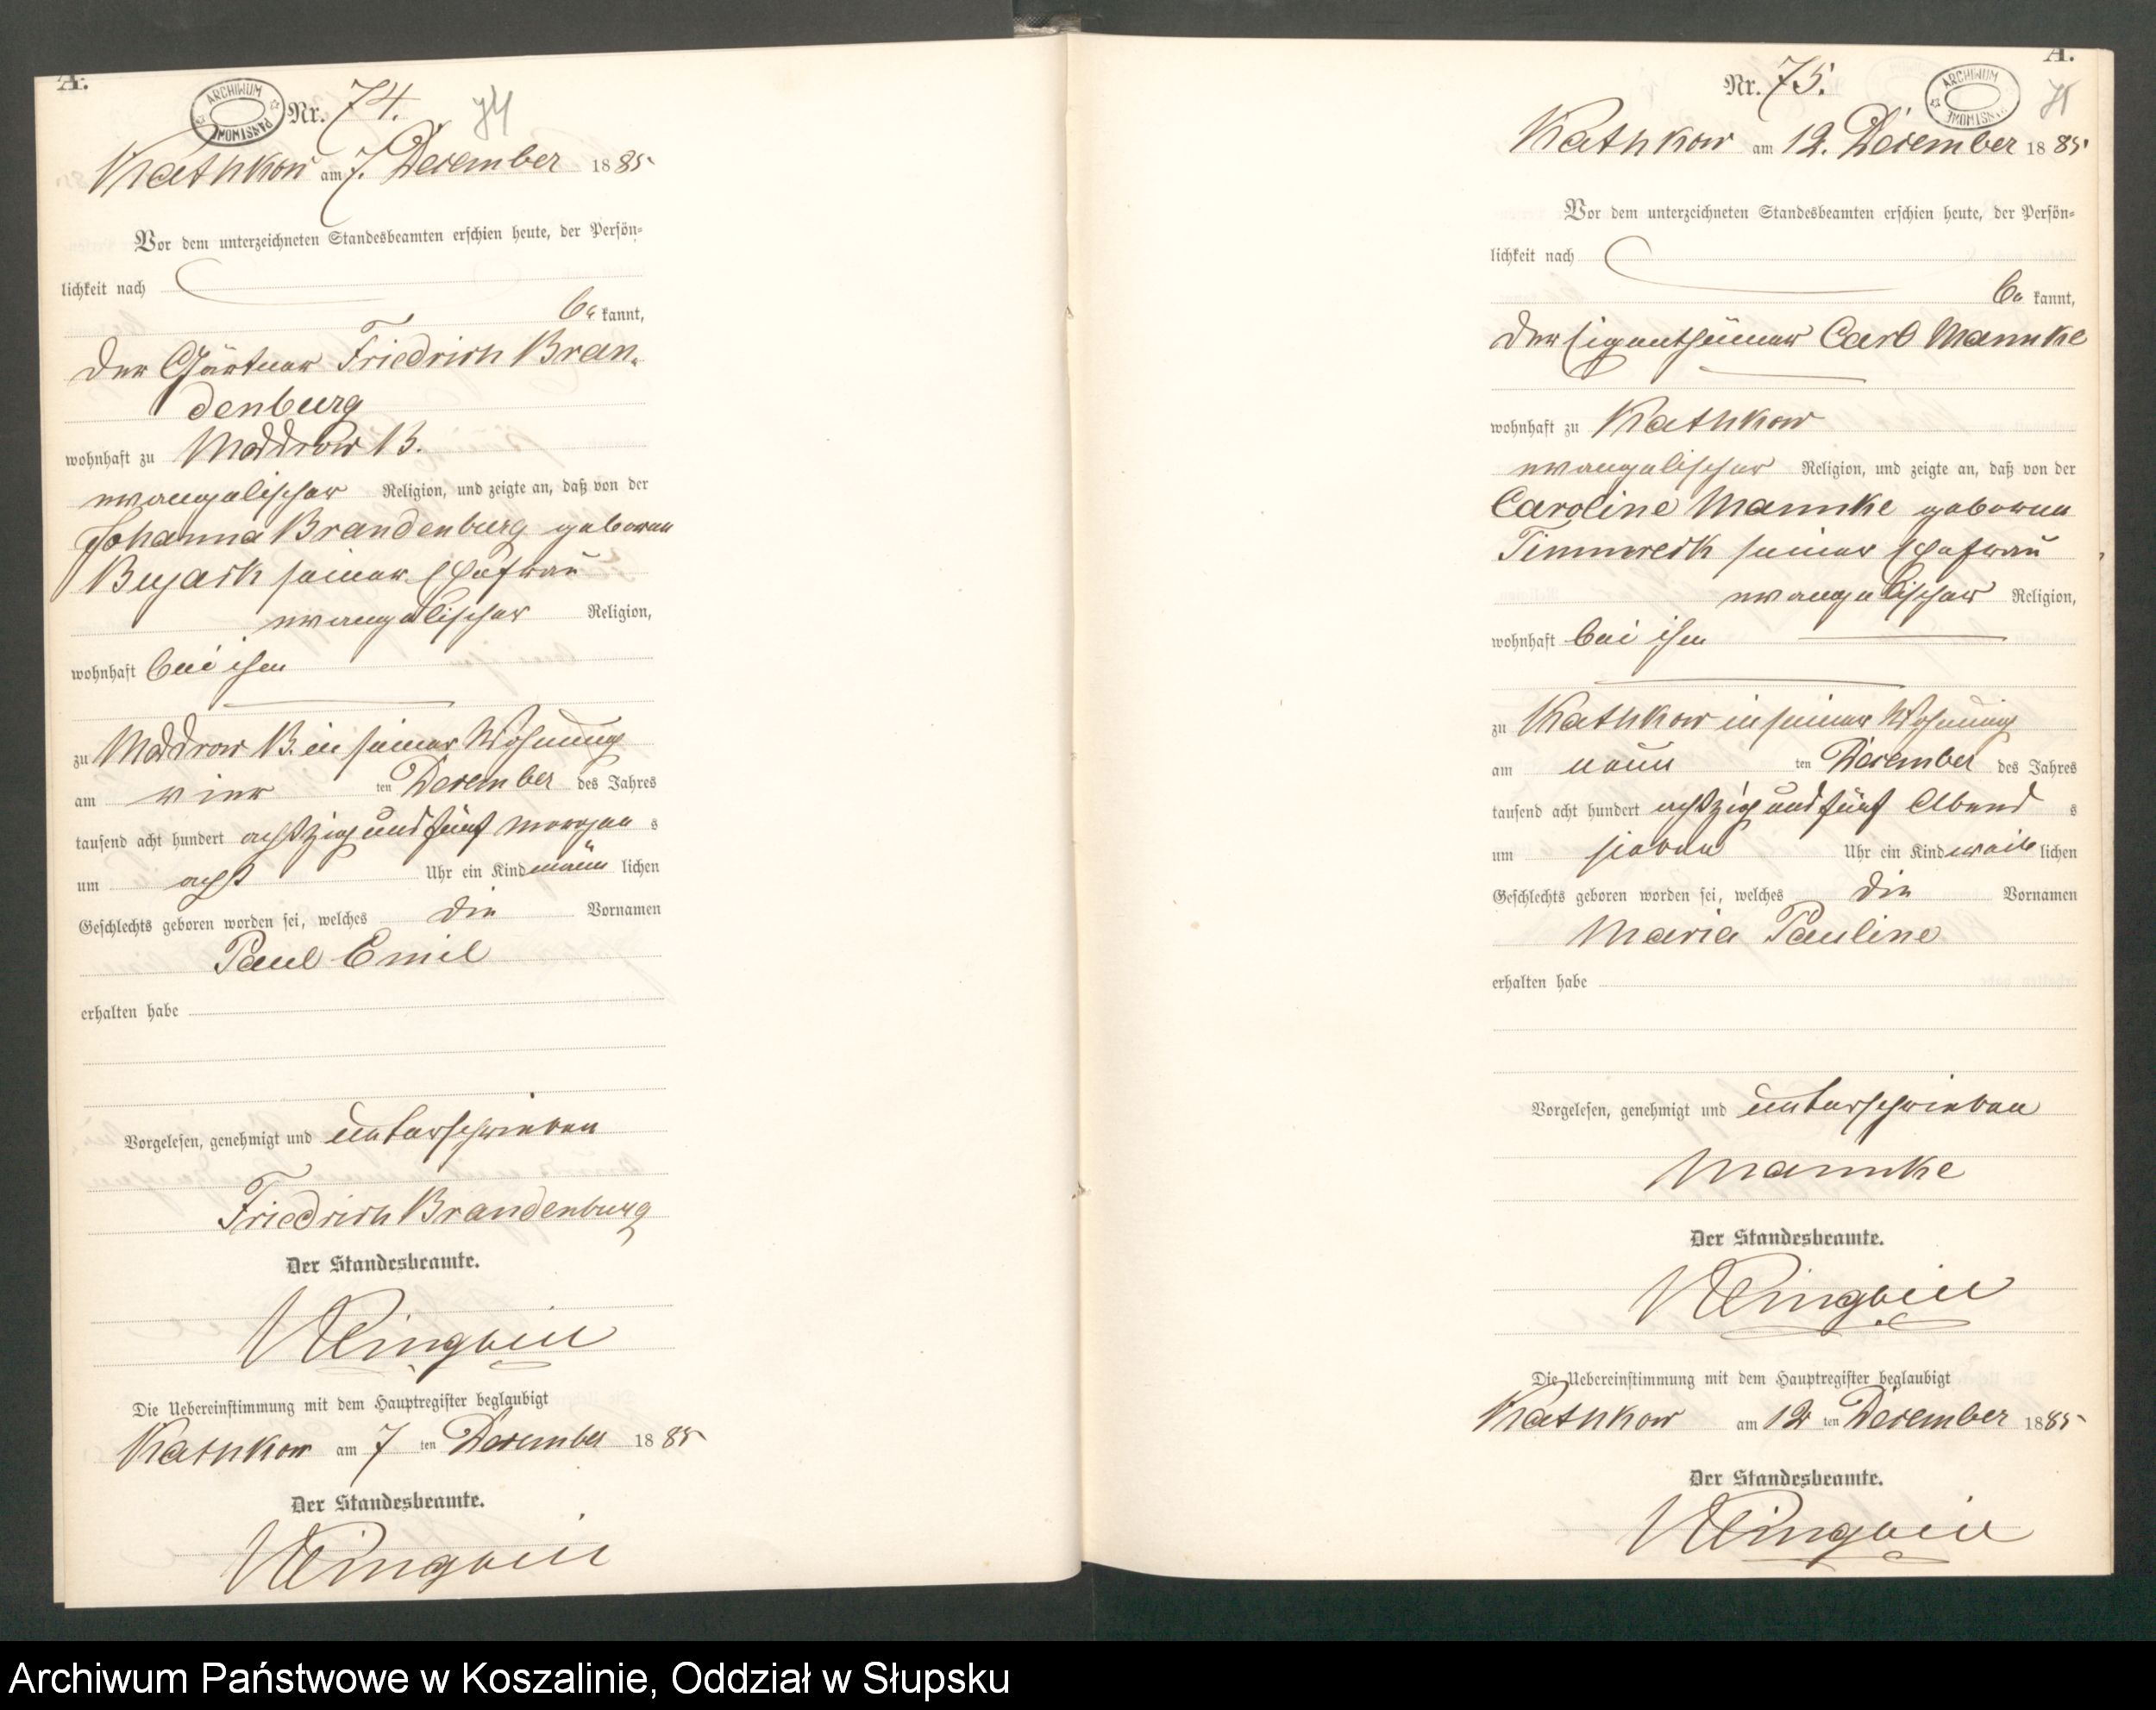 A.
ARCHIWUM PAŃSTWOWE
Nr. 74.
74
Kathkow am 7. December 1885
Vor dem unterzeichneten Standesbeamten erschien heute, der Persön-
lichkeit nach
be kannt,
der Gärtner Friedrich Bran-
denburg
wohnhaft zu Moddrow B.
evangelischer Religion, und zeigte an, daß von der
Johanna Brandenburg geboren
Byjack seiner Ehefrau
evangelischer Religion,
wohnhaft bei ihm
zu Moddrow B. in seiner Wohnung
am vier ten December des Jahres
tausend acht hundert achtzig und fünf Morgen s
um acht Uhr ein Kind männ lichen
Geschlechts geboren worden sei, welches die Vornamen
Paul Emil
erhalten habe
Vorgelesen, genehmigt und unterschrieben
Friedrich Brandenburg
Der Standesbeamte.
Die Uebereinstimmung mit dem Hauptregister beglaubigt
Kathkow am 7 ten December 1885
Der Standesbeamte.
A.
Nr. 75.
ARCHIWUM PAŃSTWOWE
75
Kathkow am 12. December 1885
Vor dem unterzeichneten Standesbeamten erschien heute, der Persön-
lichkeit nach
be kannt,
der Eigenthümer Carl Mannke
wohnhaft zu Kathkow
evangelischer Religion, und zeigte an, daß von der
Caroline Mannke geboren
Timmreck seiner Ehefrau
evangelischer Religion,
wohnhaft bei ihm
zu Kathkow in seiner Wohnung
am neun ten December des Jahres
tausend acht hundert achtzig und fünf Abend s
um sieben Uhr ein Kind weib lichen
Geschlechts geboren worden sei, welches die Vornamen
Maria Pauline
erhalten habe
Vorgelesen, genehmigt und unterschrieben
Mannke
Der Standesbeamte.
Die Uebereinstimmung mit dem Hauptregister beglaubigt
Kathkow am 12 ten December 1885
Der Standesbeamte.
Archiwum Państwowe w Koszalinie, Oddział w Słupsku